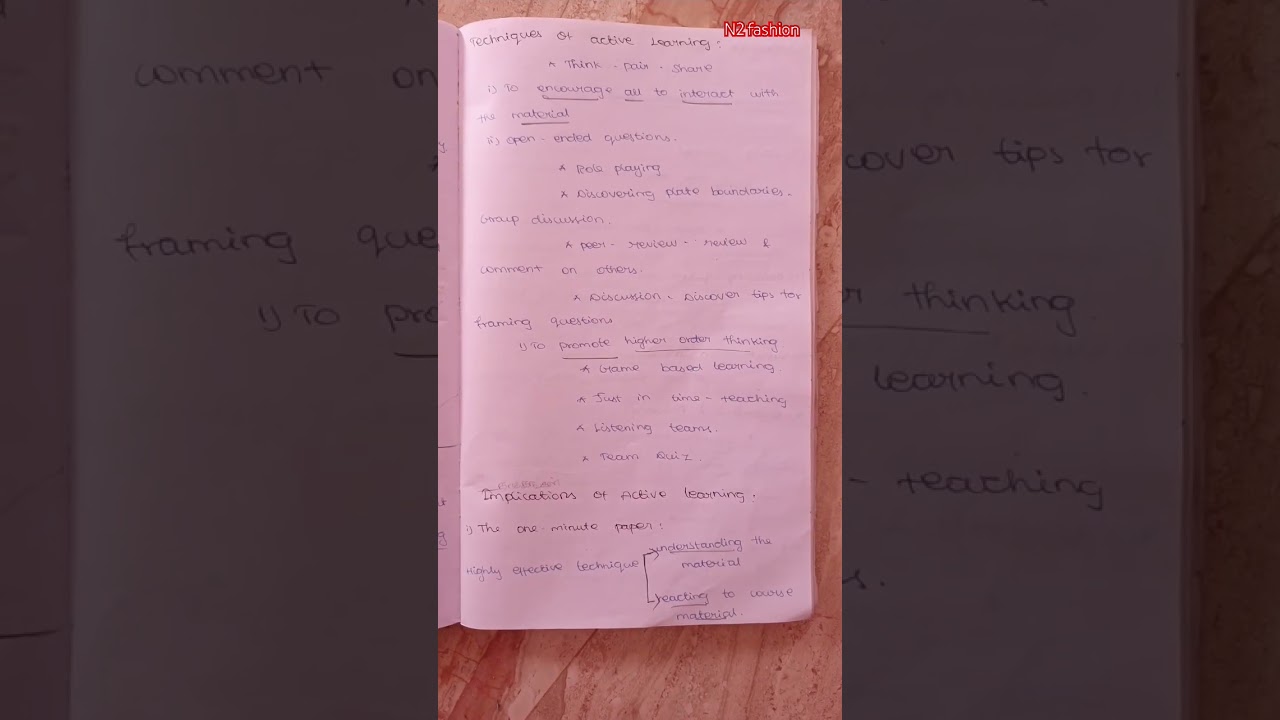 N2 fashion
Techniques of active Learning:
* Think - pair - share
i) To encourage all to interact with
the material
ii) open - ended questions.
* Role playing
* Discovering plate boundaries -
Group discussion.
* peer - review - review &
comment on others.
* Discussion - Discover tips for
framing questions
i) To promote higher order thinking
* Game based learning.
* Just in time - teaching
* Listening teams.
* Team Quiz.
Implications of Active learning:
i) The one-minute paper:
understanding the
Highly effective technique
material
reacting to course
material.